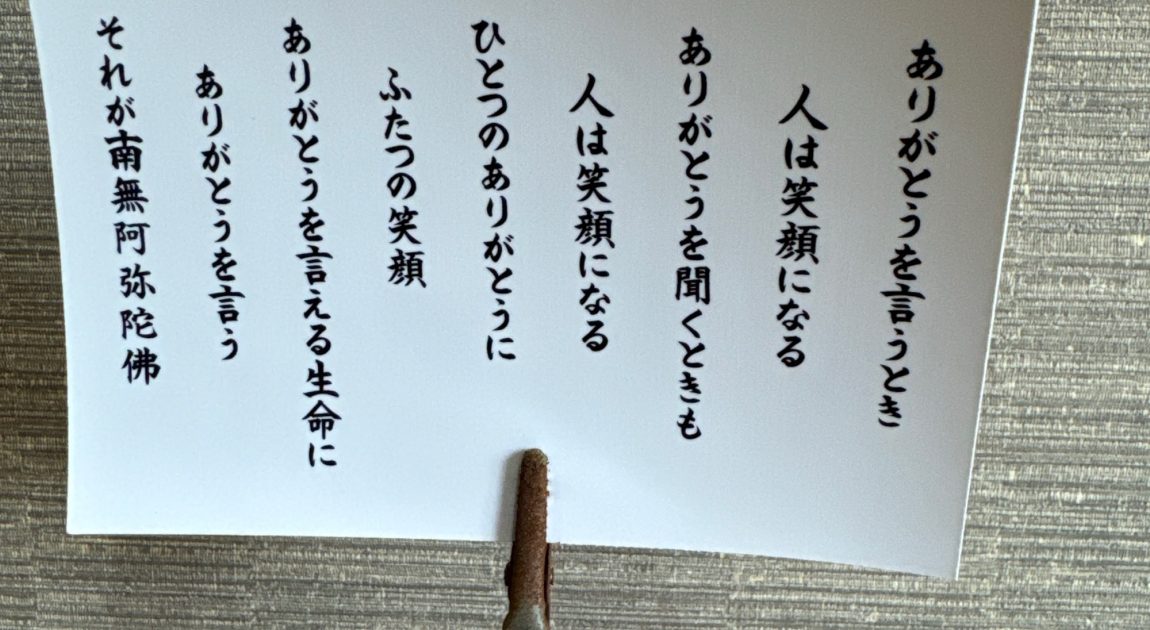 ありがとうを言うとき
人は笑顔になる
ありがとうを聞くときも
人は笑顔になる
ひとつのありがとうに
ふたつの笑顔
ありがとうを言える生命に
ありがとうを言う
それが南無阿弥陀佛